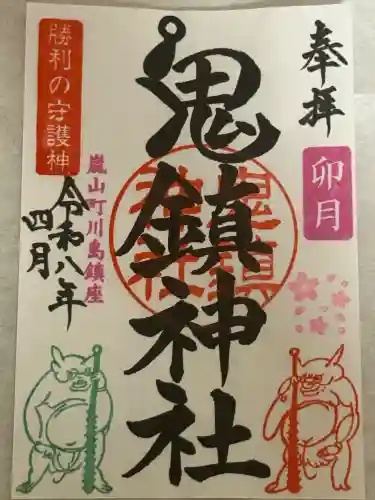 奉拝
卯月
鬼鎮神社
勝利の守護神
嵐山町川島鎮座
令和八年
四月
鬼鎮神社